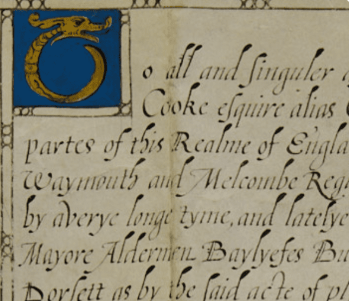 To all and singuler
Cooke esquire alias
partes of this Realme of Engla
Waymouth and Melcombe Reg
by averye longe tyme, and latelye
Mayore Aldermen Baylyefes Bu
Dorsett as by the said acte of p